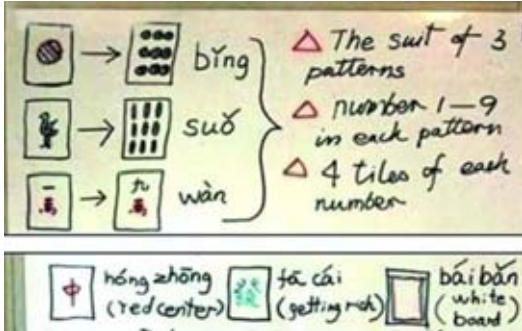 bǐng
suǒ
一萬
九萬
wàn
The suit of 3
patterns
number 1-9
in each pattern
4 tiles of each
number
中
hóng zhōng
(red center)
fā cái
(getting rich)
bái bǎn
(white
board)